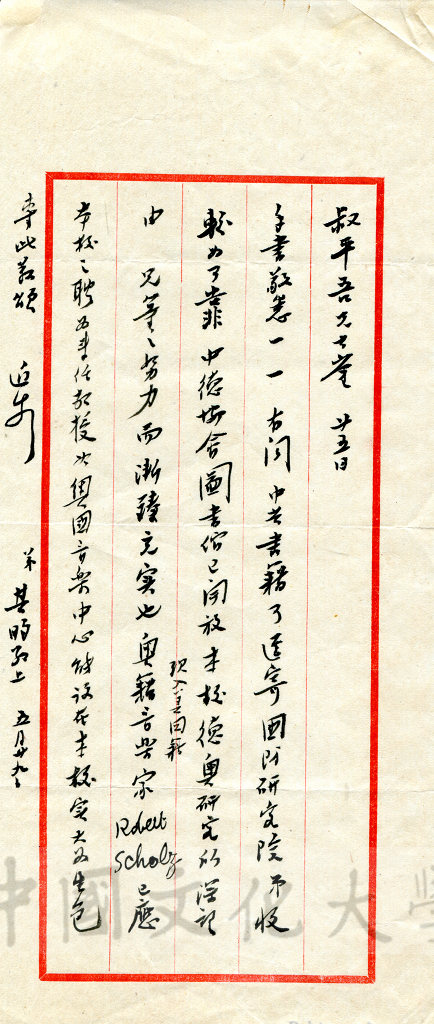 叔平吾兄大鑒 廿五日
手書敬悉一一 有關中共書籍可逕寄國防研究院 予收
較為可靠 中德協會圖書館已開放 本校德奧研究所深望
由 兄等之努力而漸臻充實也 奧籍音樂家 Robert Scholz 已應
現入美國籍
本校之聘為專任教授 如奧國音樂中心能設在本校實大為生色
專此敬頌
近安
弟 其昀敬上 五月廿九日
中國文化大學